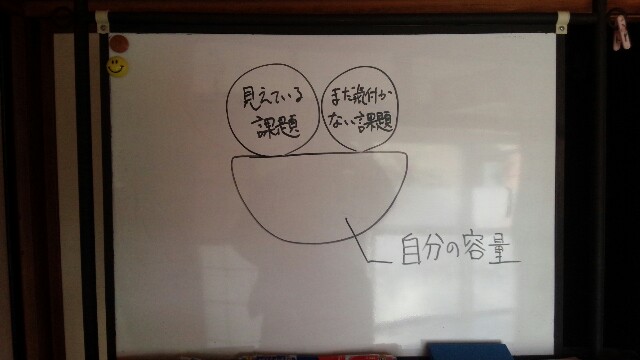 見えている
課題
まだ気付か
ない課題
自分の容量